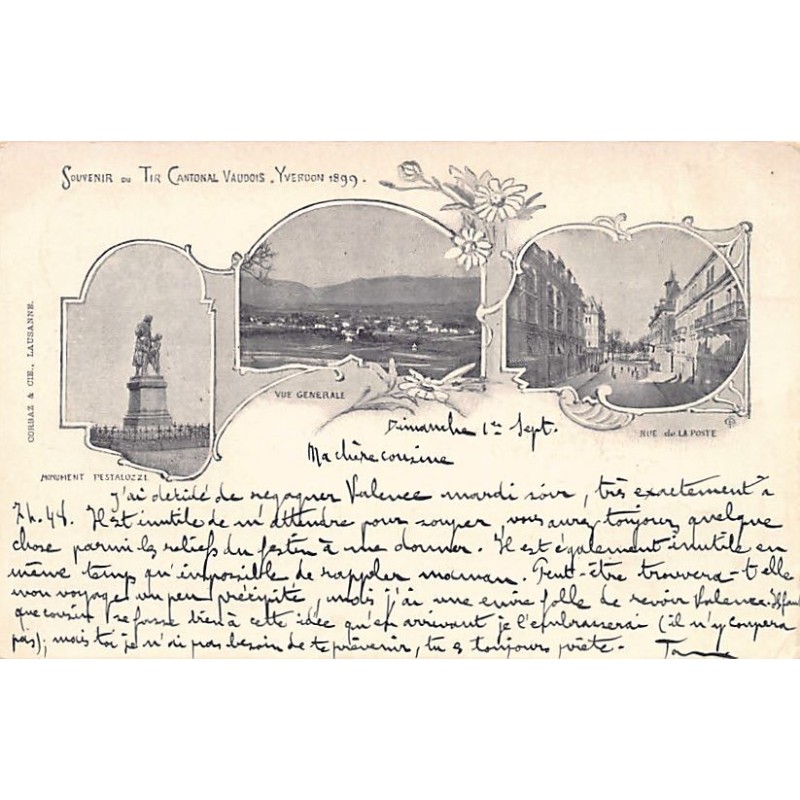 SOUVENIR DU TIR CANTONAL VAUDOIS. YVERDON 1899.
CORBAZ & CIE., LAUSANNE.
VUE GENERALE
RUE de LA POSTE
MONUMENT PESTALOZZI
Dimanche 1er Sept.
Ma chère cousine
J'ai décidé de regagner Valence mardi soir, très exactement à
7h.48. Il est inutile de m'attendre pour souper, vous aurez toujours quelque
chose parmi les reliefs du festin à me donner. Il est également inutile en
même temps qu'impossible de rappeler maman. Peut-être trouvera-t-elle
mon voyage un peu précipité, mais j'ai une envie folle de revoir Valence. Il faut
que cousin se fasse bien à cette idée qu'en arrivant je l'embrasserai (il n'y coupera
pas); mais toi je n'ai pas besoin de te prévenir, tu es toujours prête.